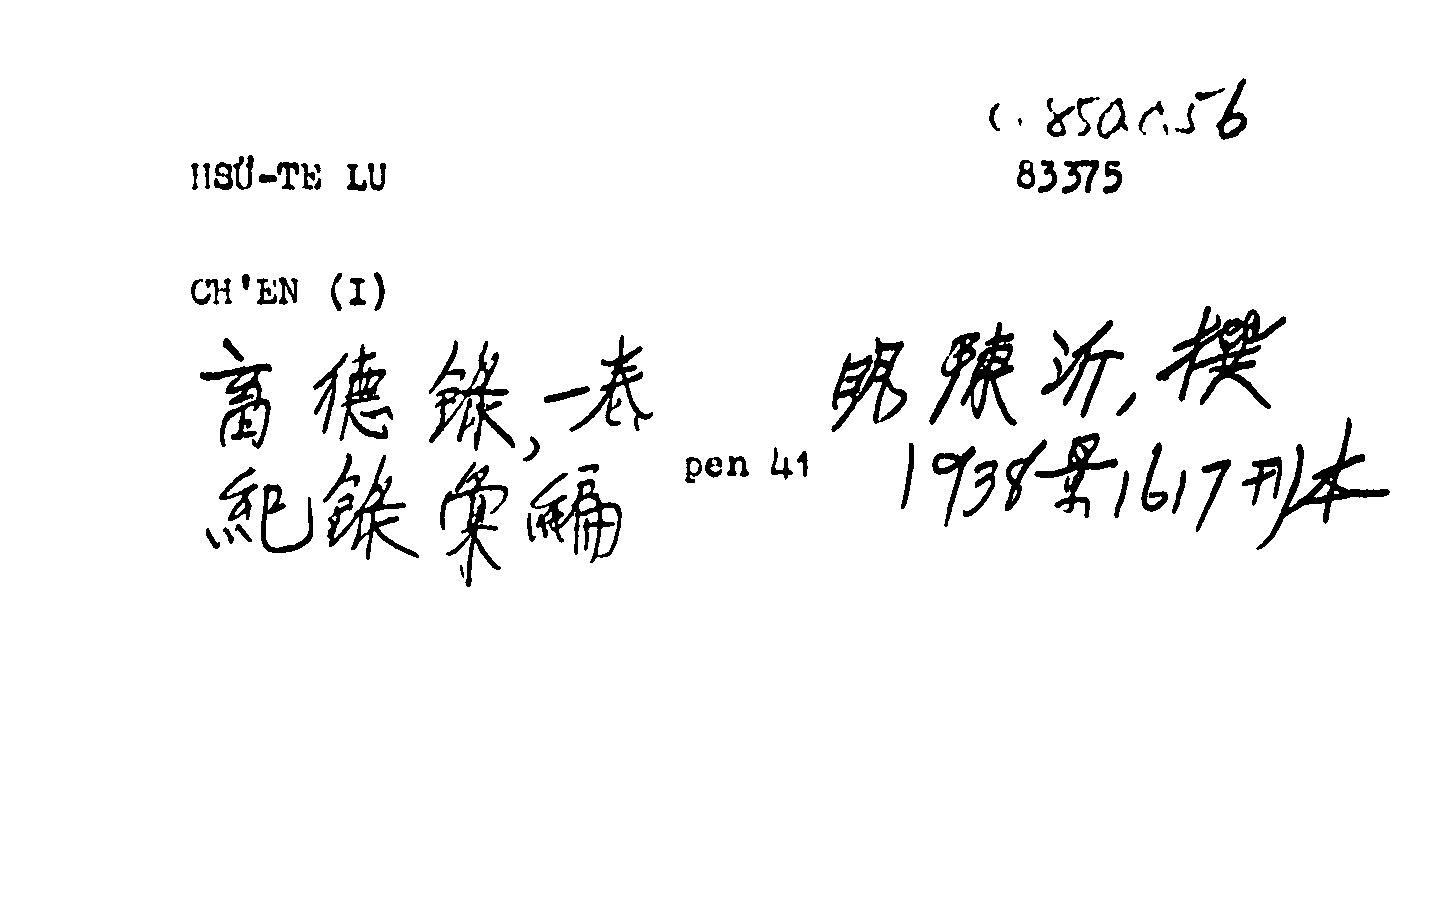 C. 850.c.56
HSÜ-TE LU 83375
CH'EN (I)
畜德錄,一卷 明陳沂,撰
紀錄彙編 pen 41 1938景1617刊本